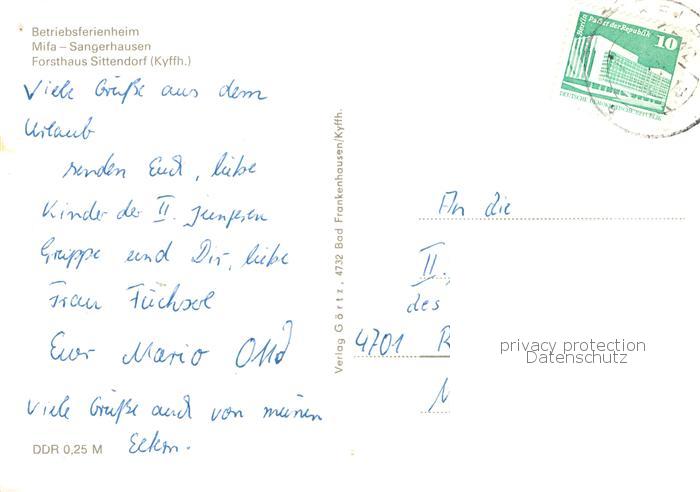 Betriebsferienheim
Mifa – Sangerhausen
Forsthaus Sittendorf (Kyffh.)
Viele Grüße aus dem
Urlaub
senden Euch, liebe
Kinder der II. jüngeren
Gruppe und Dir, liebe
Frau Füchsel
Euer Mario Otto
Viele Grüße auch von meinen
Eltern.
DDR 0,25 M
Verlag Görtz, 4732 Bad Frankenhausen/Kyffh.
Berlin Palast der Republik
10
An die
II.
des
4701 R
privacy protection
Datenschutz